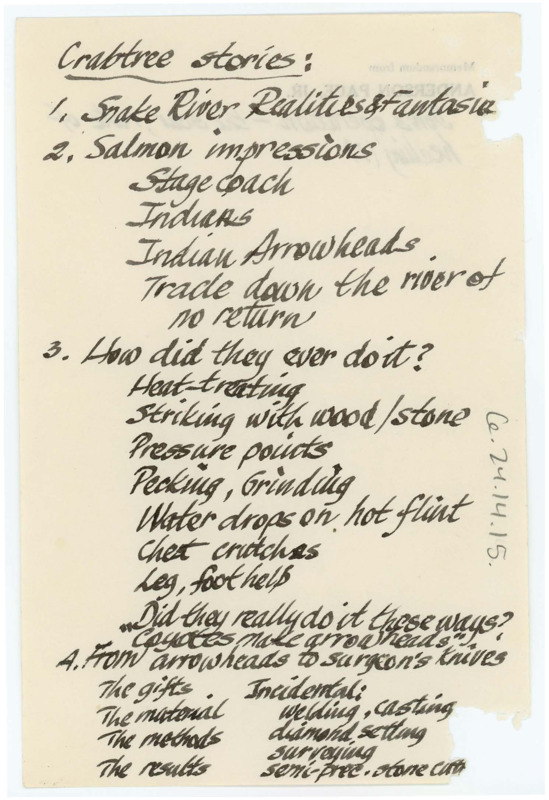 Crabtree stories:
1. Snake River Realities & Fantasie
2. Salmon impressions
Stage coach
Indians
Indian Arrowheads
Trade down the river of
no return
3. How did they ever do it?
Heat-treating
Striking with wood/stone
Pressure points
Pecking, Grinding
Water drops on hot flint
Chest crutches
Leg, foot help
Did they really do it these ways?
"Coyotes make arrowheads"!
4. From arrowheads to surgeon's knives
The gifts Incidental:
The material welding, casting
The methods diamond setting
surveying
The results semi-prec. stone cutti
Memorandum from
ANDERSON PAGE, JR.
6.24.14.15.